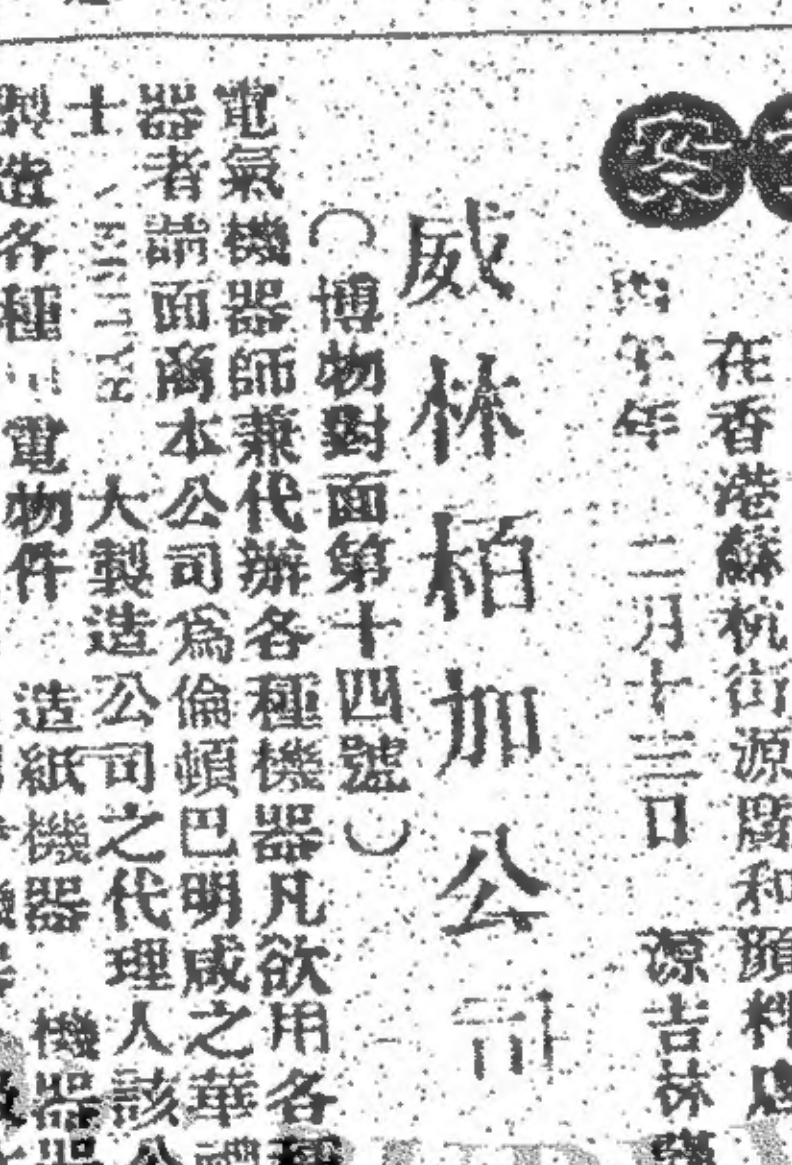 安
在香港蘇杭街源廣和顏料
丙午年 二月十三日 源吉林
威林栢加公司
（博物對面第十四號）
電氣機器師兼代辦各種機器凡欲用各種
器者請面商本公司爲倫頓巴明咸之華
士 大製造公司之代理人該公
製造各種 電物件 造紙機器 機器